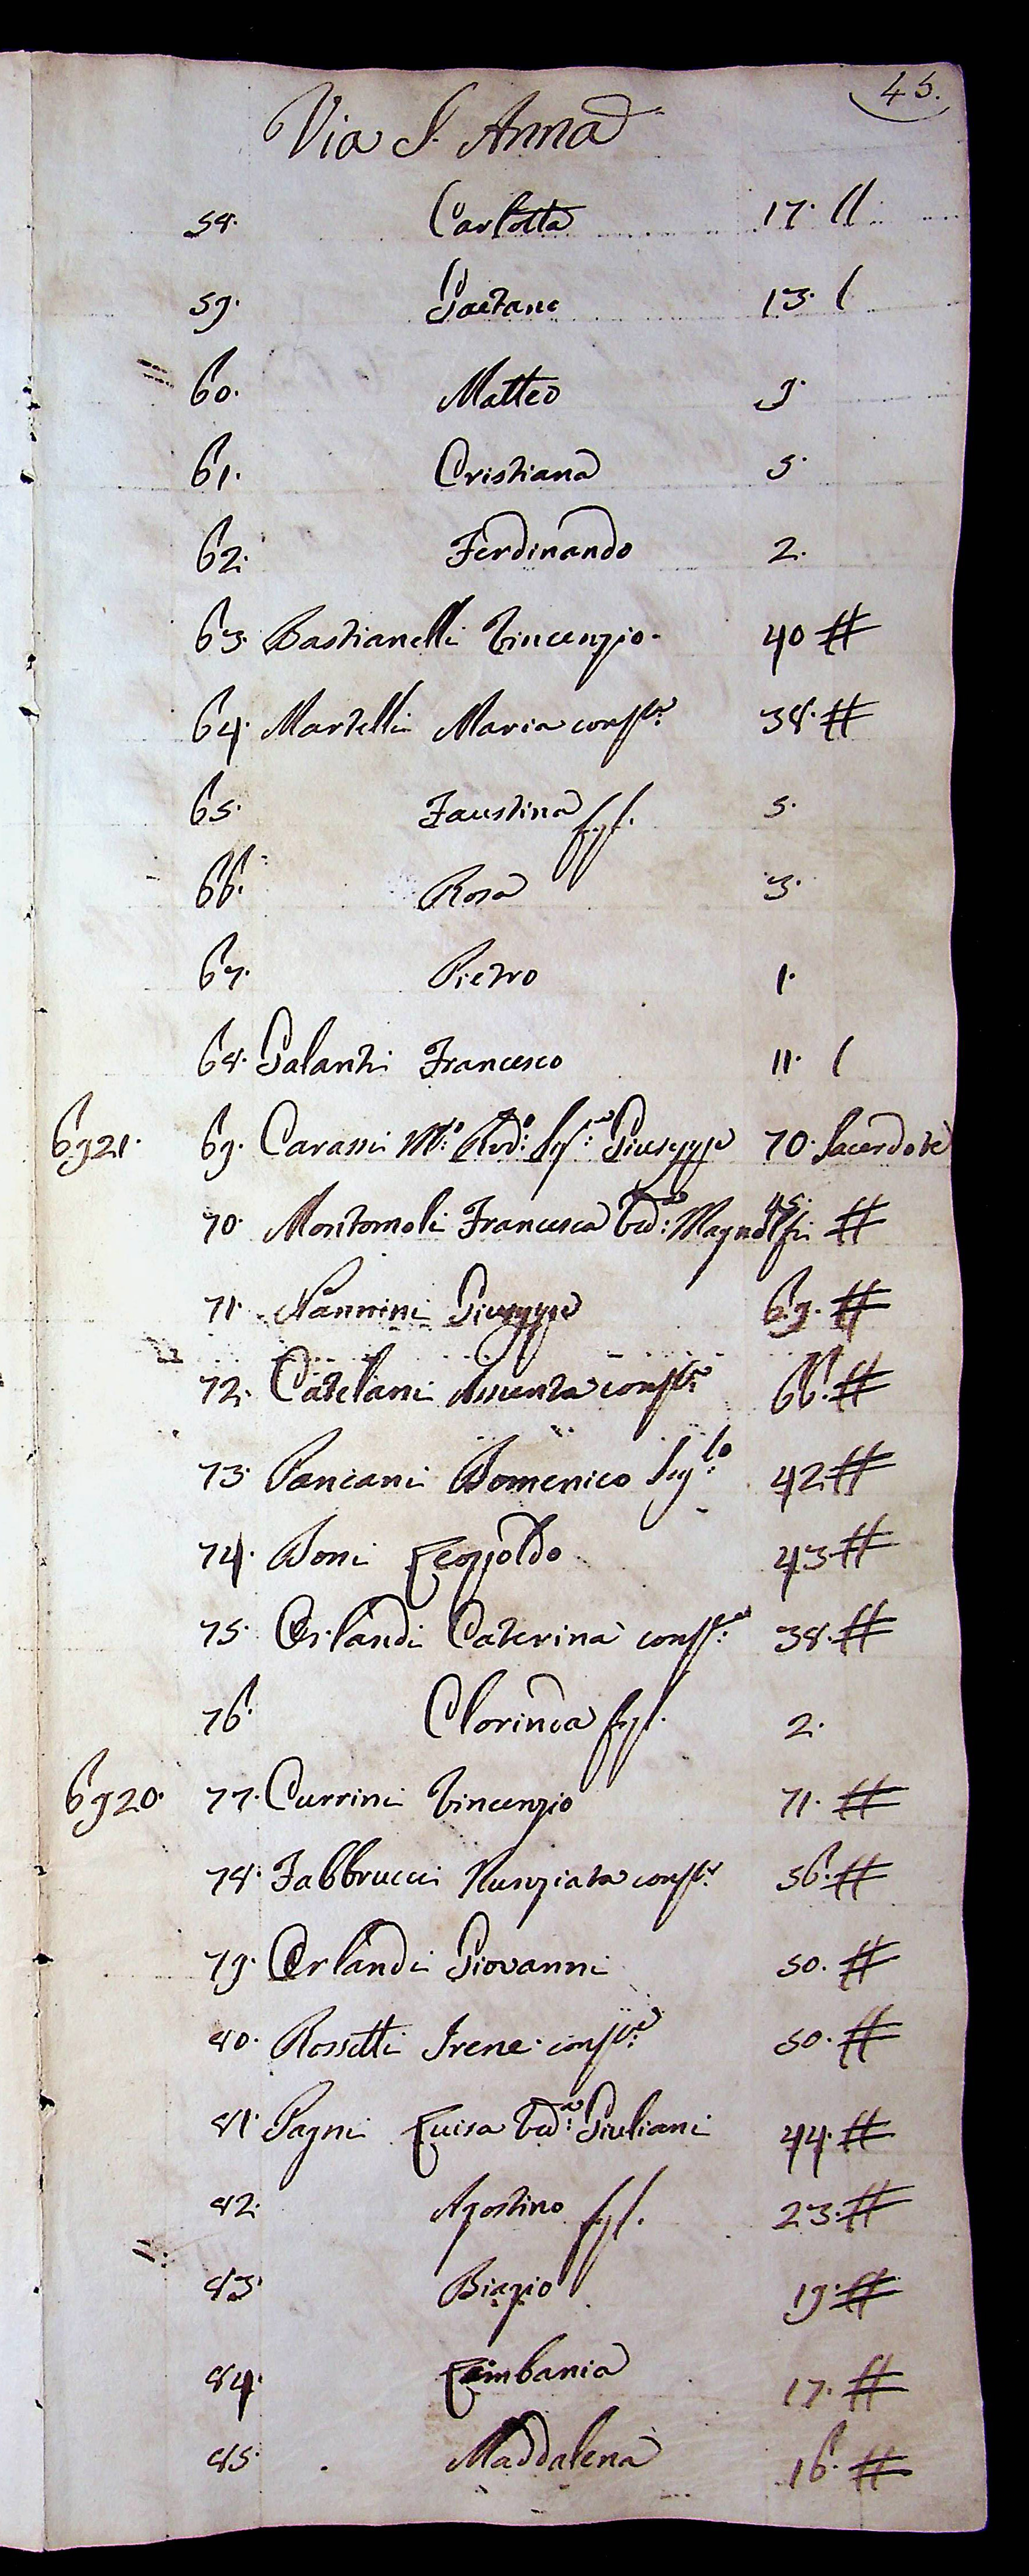 45.
Via S. Anna
58. Carlotta 17. //
59. Gaetano 13. /
60. Matteo 9.
61. Cristiana 5.
62. Ferdinando 2.
63. Bastianelli Vincenzio. 40 #
64. Martelli Maria conste: 38. #
65. Faustina figl. 5.
66. Rosa 3.
67. Pietro 1.
68. Galanti Francesco 11. /
6921. 69. Carassi M:o Red:o Sigre: Giuseppe 70. Sacerdote
70. Montomoli Francesca Vda: Magnolfi 45. #
71. Nannini Giuseppe 69. #
72. Catelani Assunta conste: 66. #
73. Panciani Domenico 42 #
74. Boni Leopoldo 43 #
75. Orlandi Caterina conste: 38. #
76. Clorinda figl. 2.
6920. 77. Currini Vincenzio 71. #
78. Fabbrucci Nunziata conste: 56. #
79. Orlandi Giovanni 50. #
80. Rossetti Irene conste: 50. #
81. Pagni Luisa Vda: Giuliani 44. #
82. Agostino figl. 23. #
83. Biagio 19. #
84. 17. #
85. Maddalena 16. #